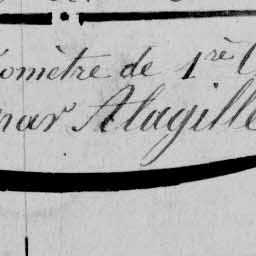 omètre de 1re
par Alagille